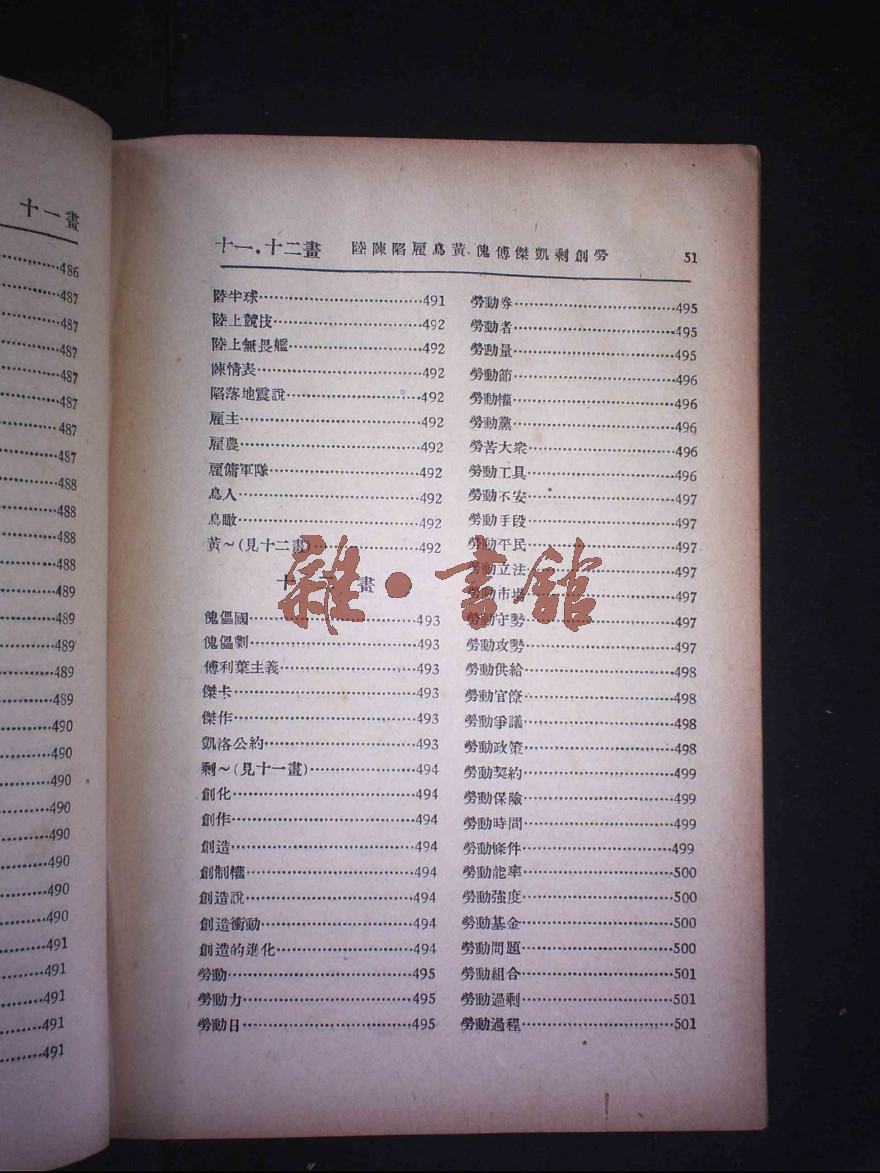 十一畫
486
487
487
487
487
487
487
488
488
488
488
489
489
489
489
489
490
490
490
490
490
490
490
490
491
491
491
491
491
十一.十二畫 陸陳陷雇鳥黃.傀傅傑凱剩創勞 51
陸半球 491
陸上競技 492
陸上無畏艦 492
陳情表 492
陷落地震說 492
雇主 492
雇農 492
雇傭軍隊 492
鳥人 492
鳥瞰 492
黃~(見十二畫) 492
十二畫
傀儡國 493
傀儡劇 493
傅利葉主義 493
傑卡 493
傑作 493
凱洛公約 493
剩~(見十一畫) 494
創化 494
創作 494
創造 494
創制權 494
創造說 494
創造衝動 494
創造的進化 494
勞動 495
勞動力 495
勞動日 495
勞動券 495
勞動者 495
勞動量 495
勞動節 496
勞動權 496
勞動黨 496
勞苦大衆 496
勞動工具 496
勞動不安 497
勞動手段 497
勞動平民 497
勞動立法 497
勞動市場 497
勞動守勢 497
勞動攻勢 497
勞動供給 498
勞動官僚 498
勞動爭議 498
勞動政策 498
勞動契約 499
勞動保險 499
勞動時間 499
勞動條件 499
勞動能率 500
勞動強度 500
勞動基金 500
勞動問題 500
勞動組合 501
勞動過剩 501
勞動過程 501
雜·書館